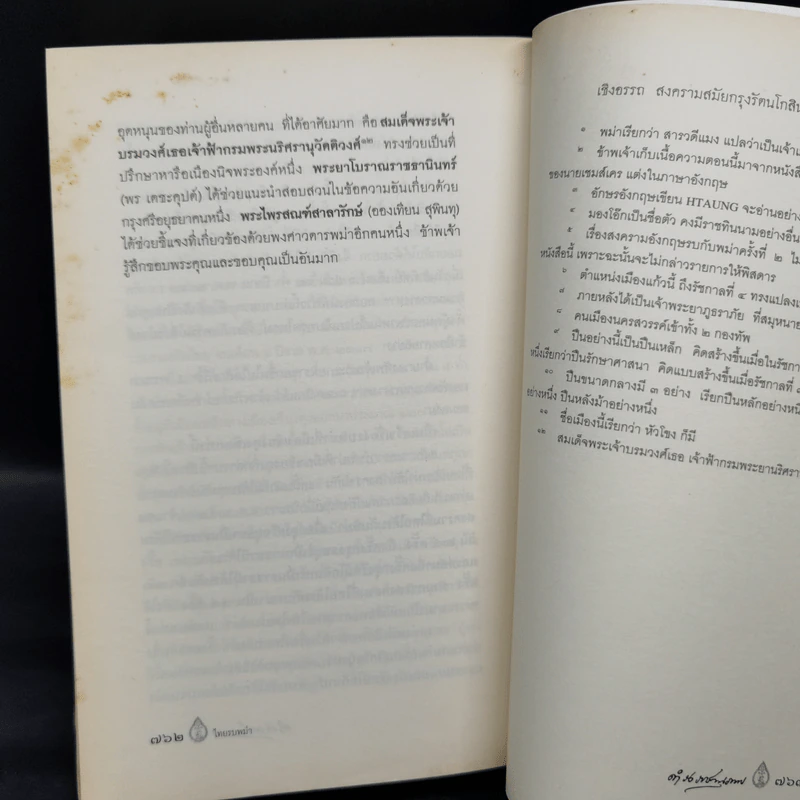 อุดหนุนของท่านผู้อื่นหลายคน ที่ได้อาศัยมาก คือ สมเด็จพระเจ้า
บรมวงศ์เธอเจ้าฟ้ากรมพระนริศรานุวัดติวงศ์๑๒ ทรงช่วยเป็นที่
ปรึกษาหารือเนืองนิจพระองค์หนึ่ง พระยาโบราณราชธานินทร์
(พร เดชะคุปต์) ได้ช่วยแนะนำสอบสวนในข้อความอันเกี่ยวด้วย
กรุงศรีอยุธยาคนหนึ่ง พระไพรสณฑ์สาลารักษ์ (อองเทียน สุพินทุ)
ได้ช่วยชี้แจงที่เกี่ยวข้องด้วยพงศาวดารพม่าอีกคนหนึ่ง ข้าพเจ้า
รู้สึกขอบพระคุณและขอบคุณเป็นอันมาก
๗๖๒ ไทยรบพม่า
เชิงอรรถ สงครามสมัยกรุงรัตนโกสิน
๑ พม่าเรียกว่า สารวดีแมง แปลว่าเป็นเจ้าเ
๒ ข้าพเจ้าเก็บเนื้อความตอนนี้มาจากหนังสื
ของนายเชมส์เคร แต่งในภาษาอังกฤษ
๓ อักษรอังกฤษเขียน HTAUNG จะอ่านอย่าง
๔ มองโอ๊กเป็นชื่อตัว คงมีราชทินนามอย่างอื่น
๕ เรื่องสงครามอังกฤษรบกับพม่าครั้งที่ ๒ ไม
หนังสือนี้ เพราะฉะนั้นจะไม่กล่าวรายการให้พิสดาร
๖ ตำแหน่งเมืองแก้วนี้ ถึงรัชกาลที่ ๔ ทรงแปลงเ
๗ ภายหลังได้เป็นเจ้าพระยาภูธราภัย ที่สมุหนาย
๘ คนเมืองนครสวรรค์เข้าทั้ง ๒ กองทัพ
๙ ปืนอย่างนี้เป็นปืนเหล็ก คิดสร้างขึ้นเมื่อในรัชกา
หนึ่งเรียกว่าปืนรักษาศาสนา คิดแบบสร้างขึ้นเมื่อรัชกาลที่
๑๐ ปืนขนาดกลางมี ๓ อย่าง เรียกปืนหลักอย่างหนึ่
อย่างหนึ่ง ปืนหลังม้าอย่างหนึ่ง
๑๑ ชื่อเมืองนี้เรียกว่า หัวโขง ก็มี
๑๒ สมเด็จพระเจ้าบรมวงศ์เธอ เจ้าฟ้ากรมพระยานริศรา